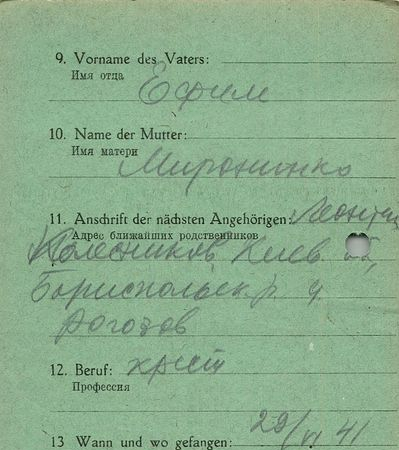 9. Vorname des Vaters:
Имя отца
Ефим
10. Name der Mutter:
Имя матери
Мироненко
11. Anschrift der nächsten Angehörigen:
Адрес ближайших родственников
Колесников Киев об,
Бориспольск р
Рогозов
12. Beruf: крест
Профессия
13 Wann und wo gefangen: 29/VI 41